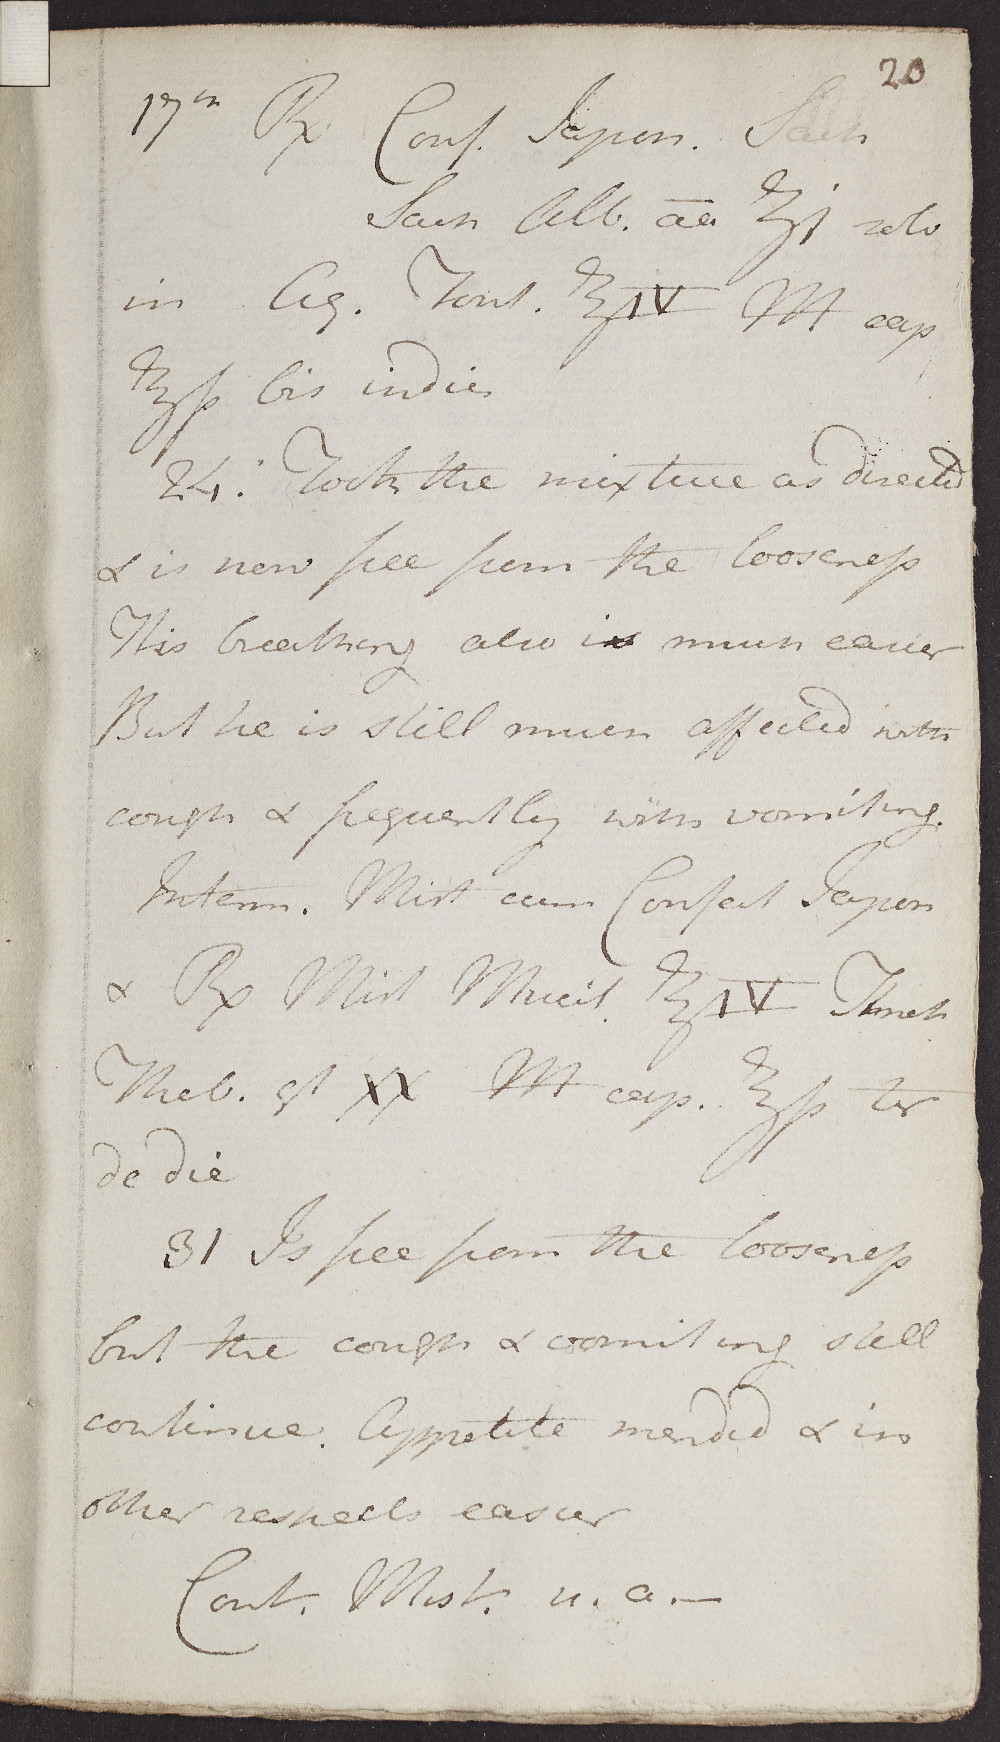 20
17th ℞ Conf. Japon. Sach
Sach Alb. āā ℥j solv
in Aq. Font. ℥IV M cap
℥ß bis indies
24: Took the mixture as directed
& is now free from the looseness
His breathing also is much easier
But he is still much affected with
cough & frequently with vomiting.
Interm. Mist cum Confect Japon
& ℞ Mist Mucil. ℥IV Tinct
Theb. gt XX M cap. ℥ß ter
de die
31 Is free from the looseness
but the cough & vomiting still
continue. Appetite mended & in
other respects easier
Cont. Mist. u. a.—